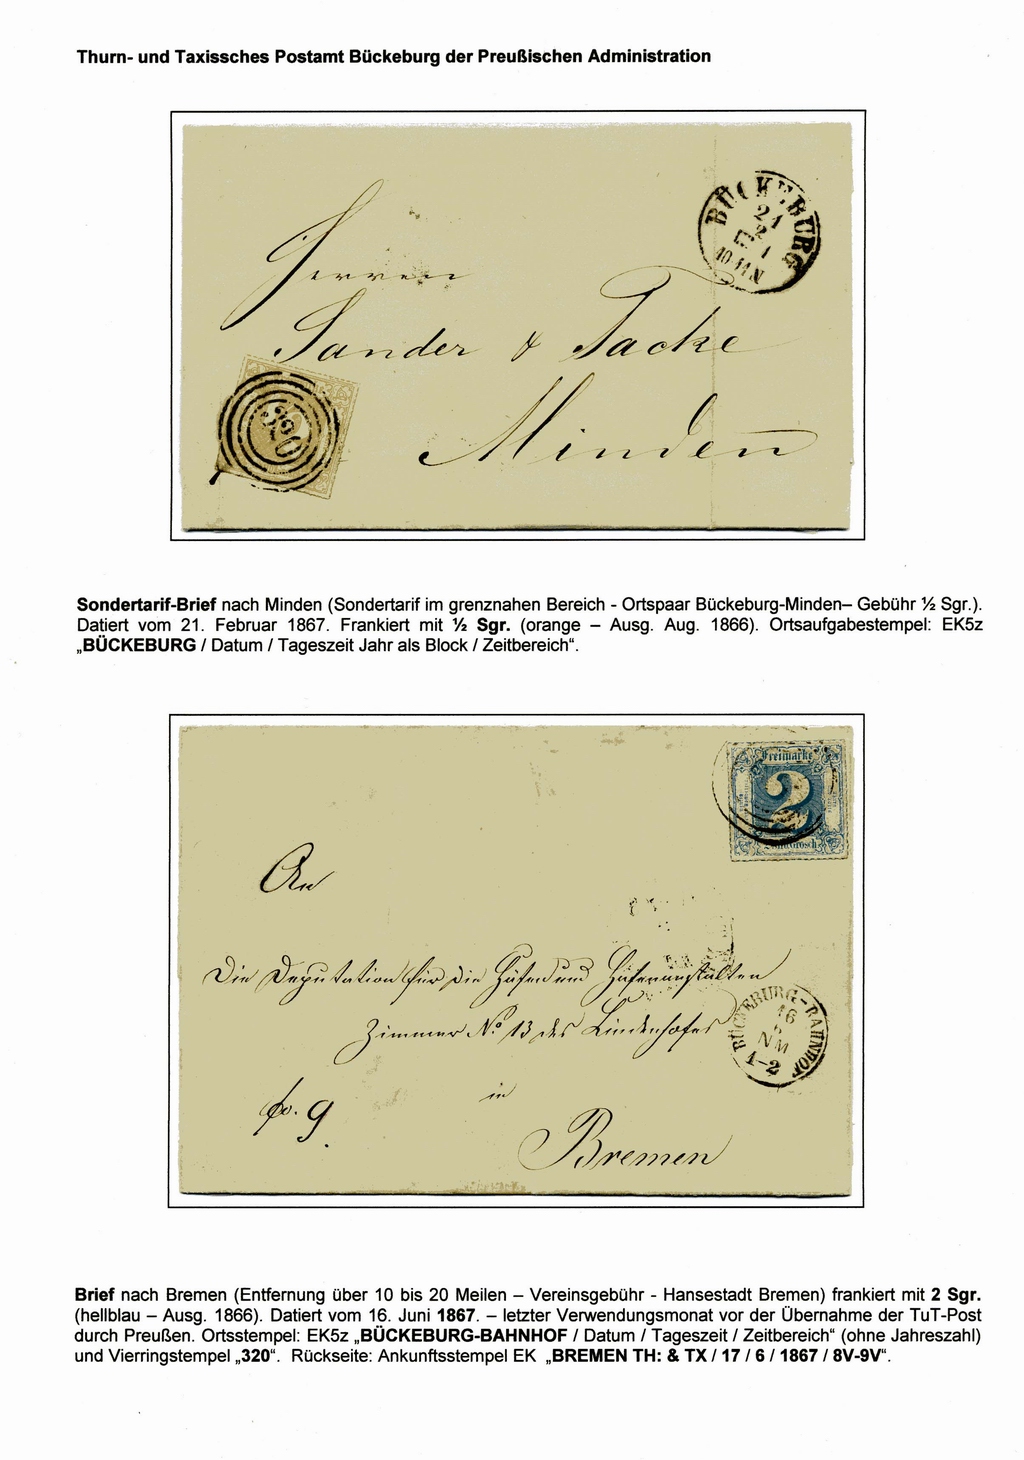 Thurn- und Taxissches Postamt Bückeburg der Preußischen Administration
BÜCKEBURG
21
2
10-11 N
Herren
Sander & Tacke
320
Minden
Sondertarif-Brief nach Minden (Sondertarif im grenznahen Bereich - Ortspaar Bückeburg-Minden– Gebühr ½ Sgr.).
Datiert vom 21. Februar 1867. Frankiert mit ½ Sgr. (orange – Ausg. Aug. 1866). Ortsaufgabestempel: EK5z
„BÜCKEBURG / Datum / Tageszeit Jahr als Block / Zeitbereich“.
Freimarke
2
An
Die Deputation für die Häfen und Häfenanstalten
Zimmer No 13 des Lindenhofes
BÜCKEBURG-BAHNHOF
16
6
NM
1-2
fr. 9
in
Bremen
Brief nach Bremen (Entfernung über 10 bis 20 Meilen – Vereinsgebühr - Hansestadt Bremen) frankiert mit 2 Sgr.
(hellblau – Ausg. 1866). Datiert vom 16. Juni 1867. – letzter Verwendungsmonat vor der Übernahme der TuT-Post
durch Preußen. Ortsstempel: EK5z „BÜCKEBURG-BAHNHOF / Datum / Tageszeit / Zeitbereich“ (ohne Jahreszahl)
und Vierringstempel „320“. Rückseite: Ankunftsstempel EK „BREMEN TH: & TX / 17 / 6 / 1867 / 8V-9V“.